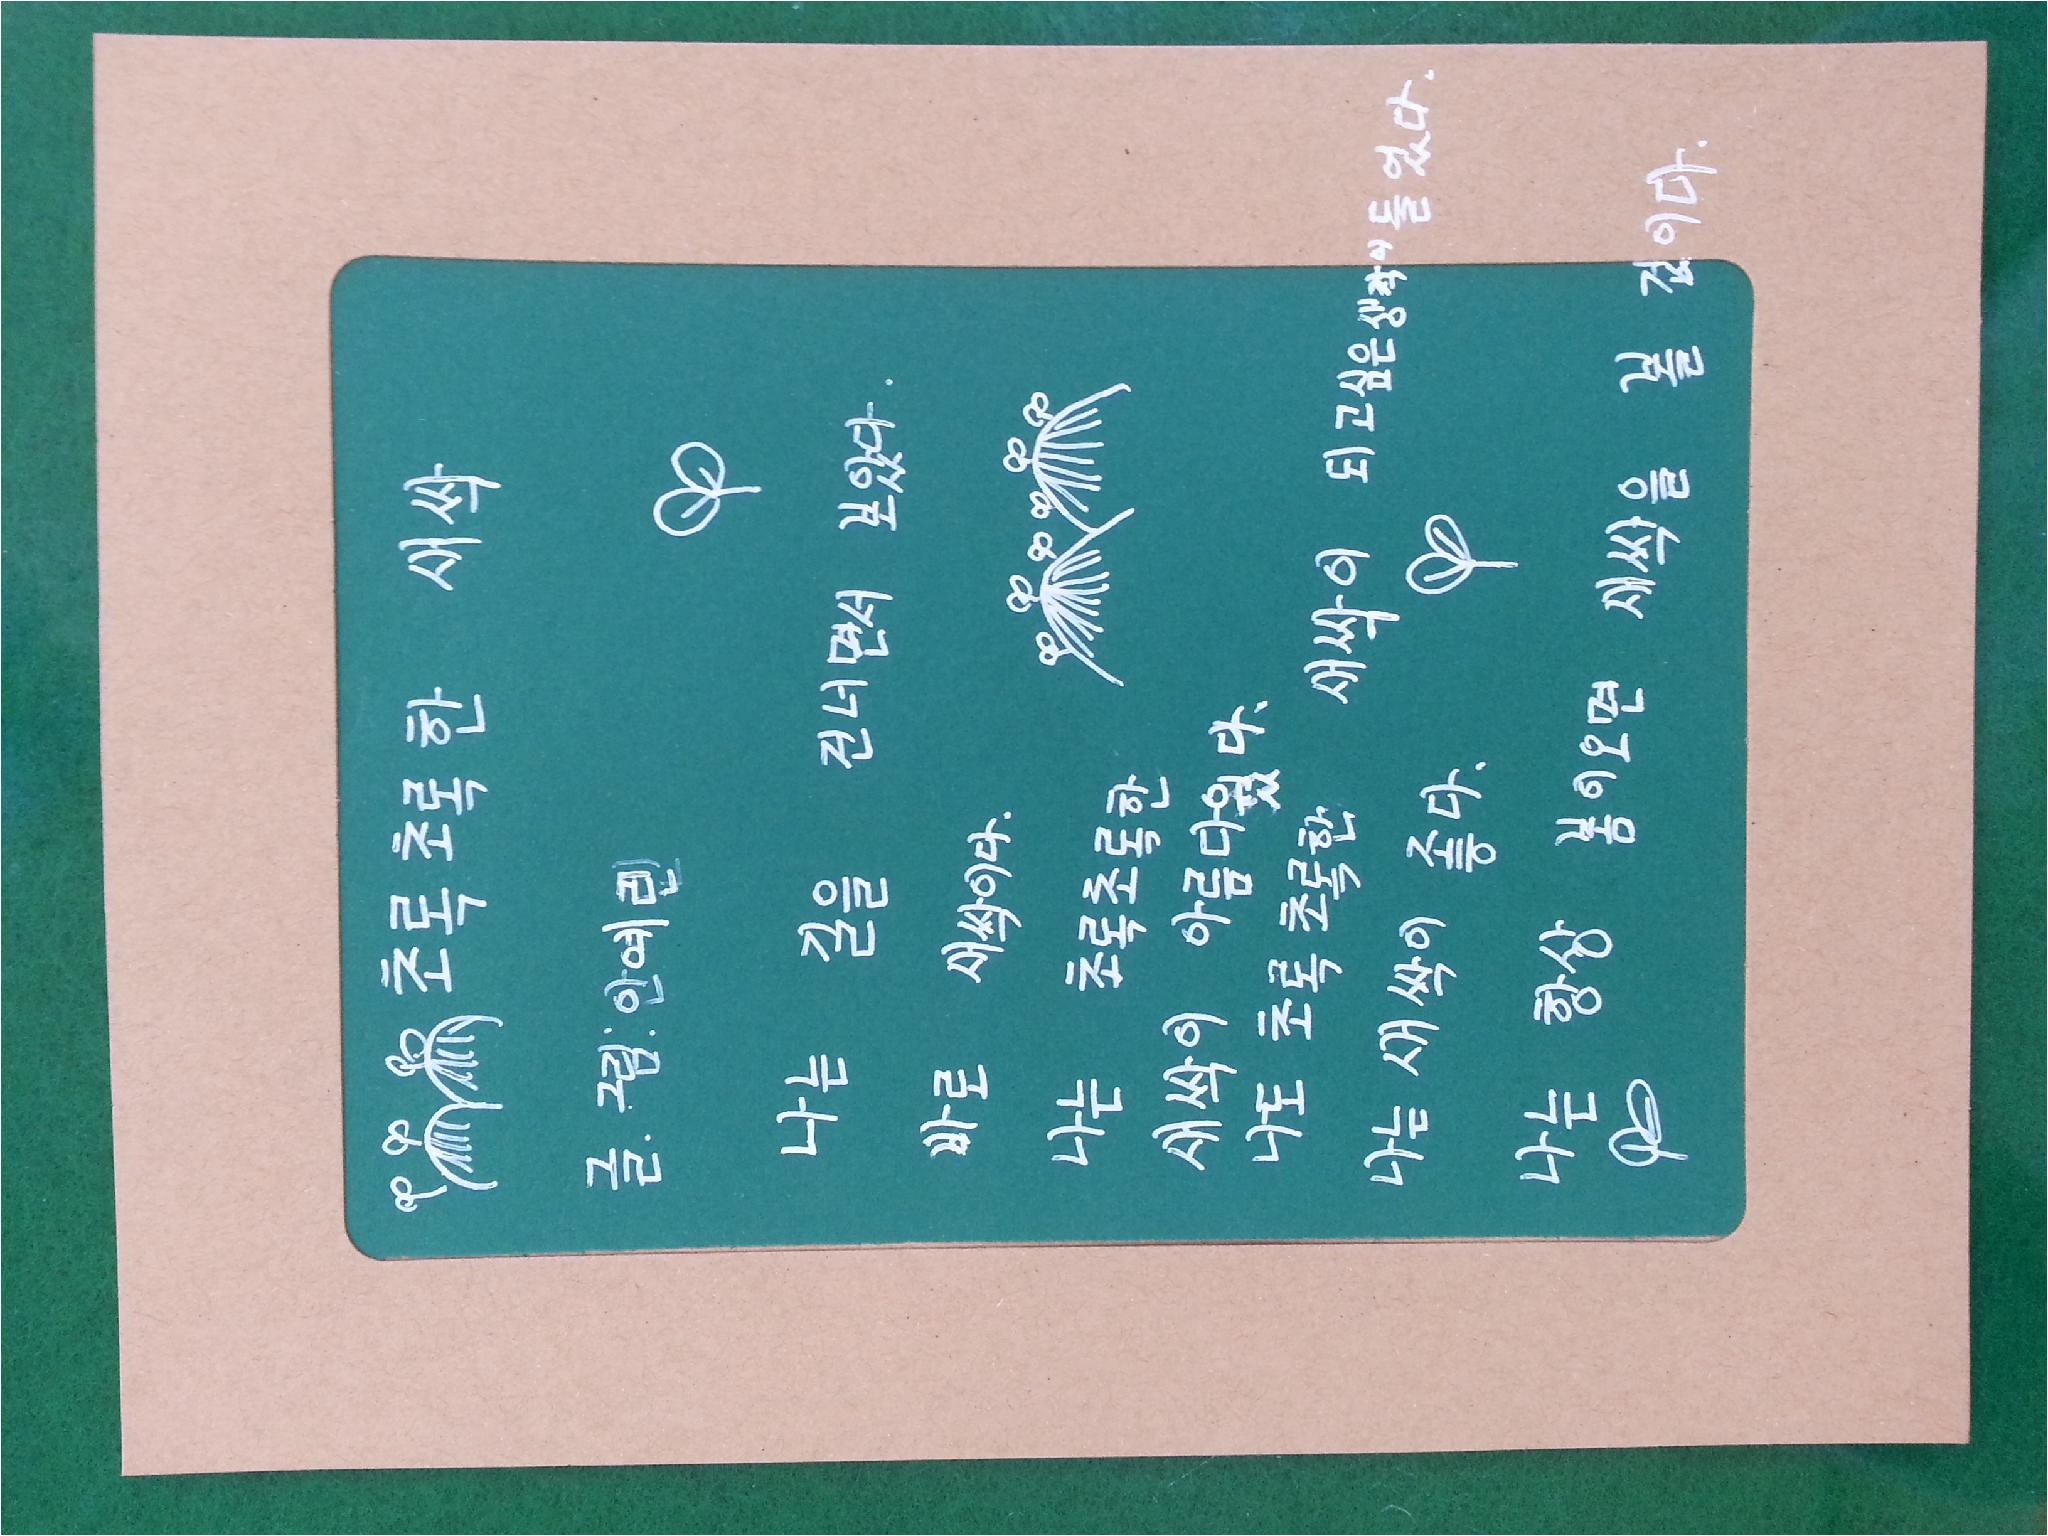 초록 초록 한 새싹
글. 그림: 안예린
나는 길을 건너면서 보았다.
바로 새싹이다.
나는 초록초록한
새싹이 아름다웠다.
나도 초록 초록한 새싹이 되고싶은생각이들었다.
나는 새싹이 좋다.
나는 항상 봄이오면 새싹을 볼 것이다.